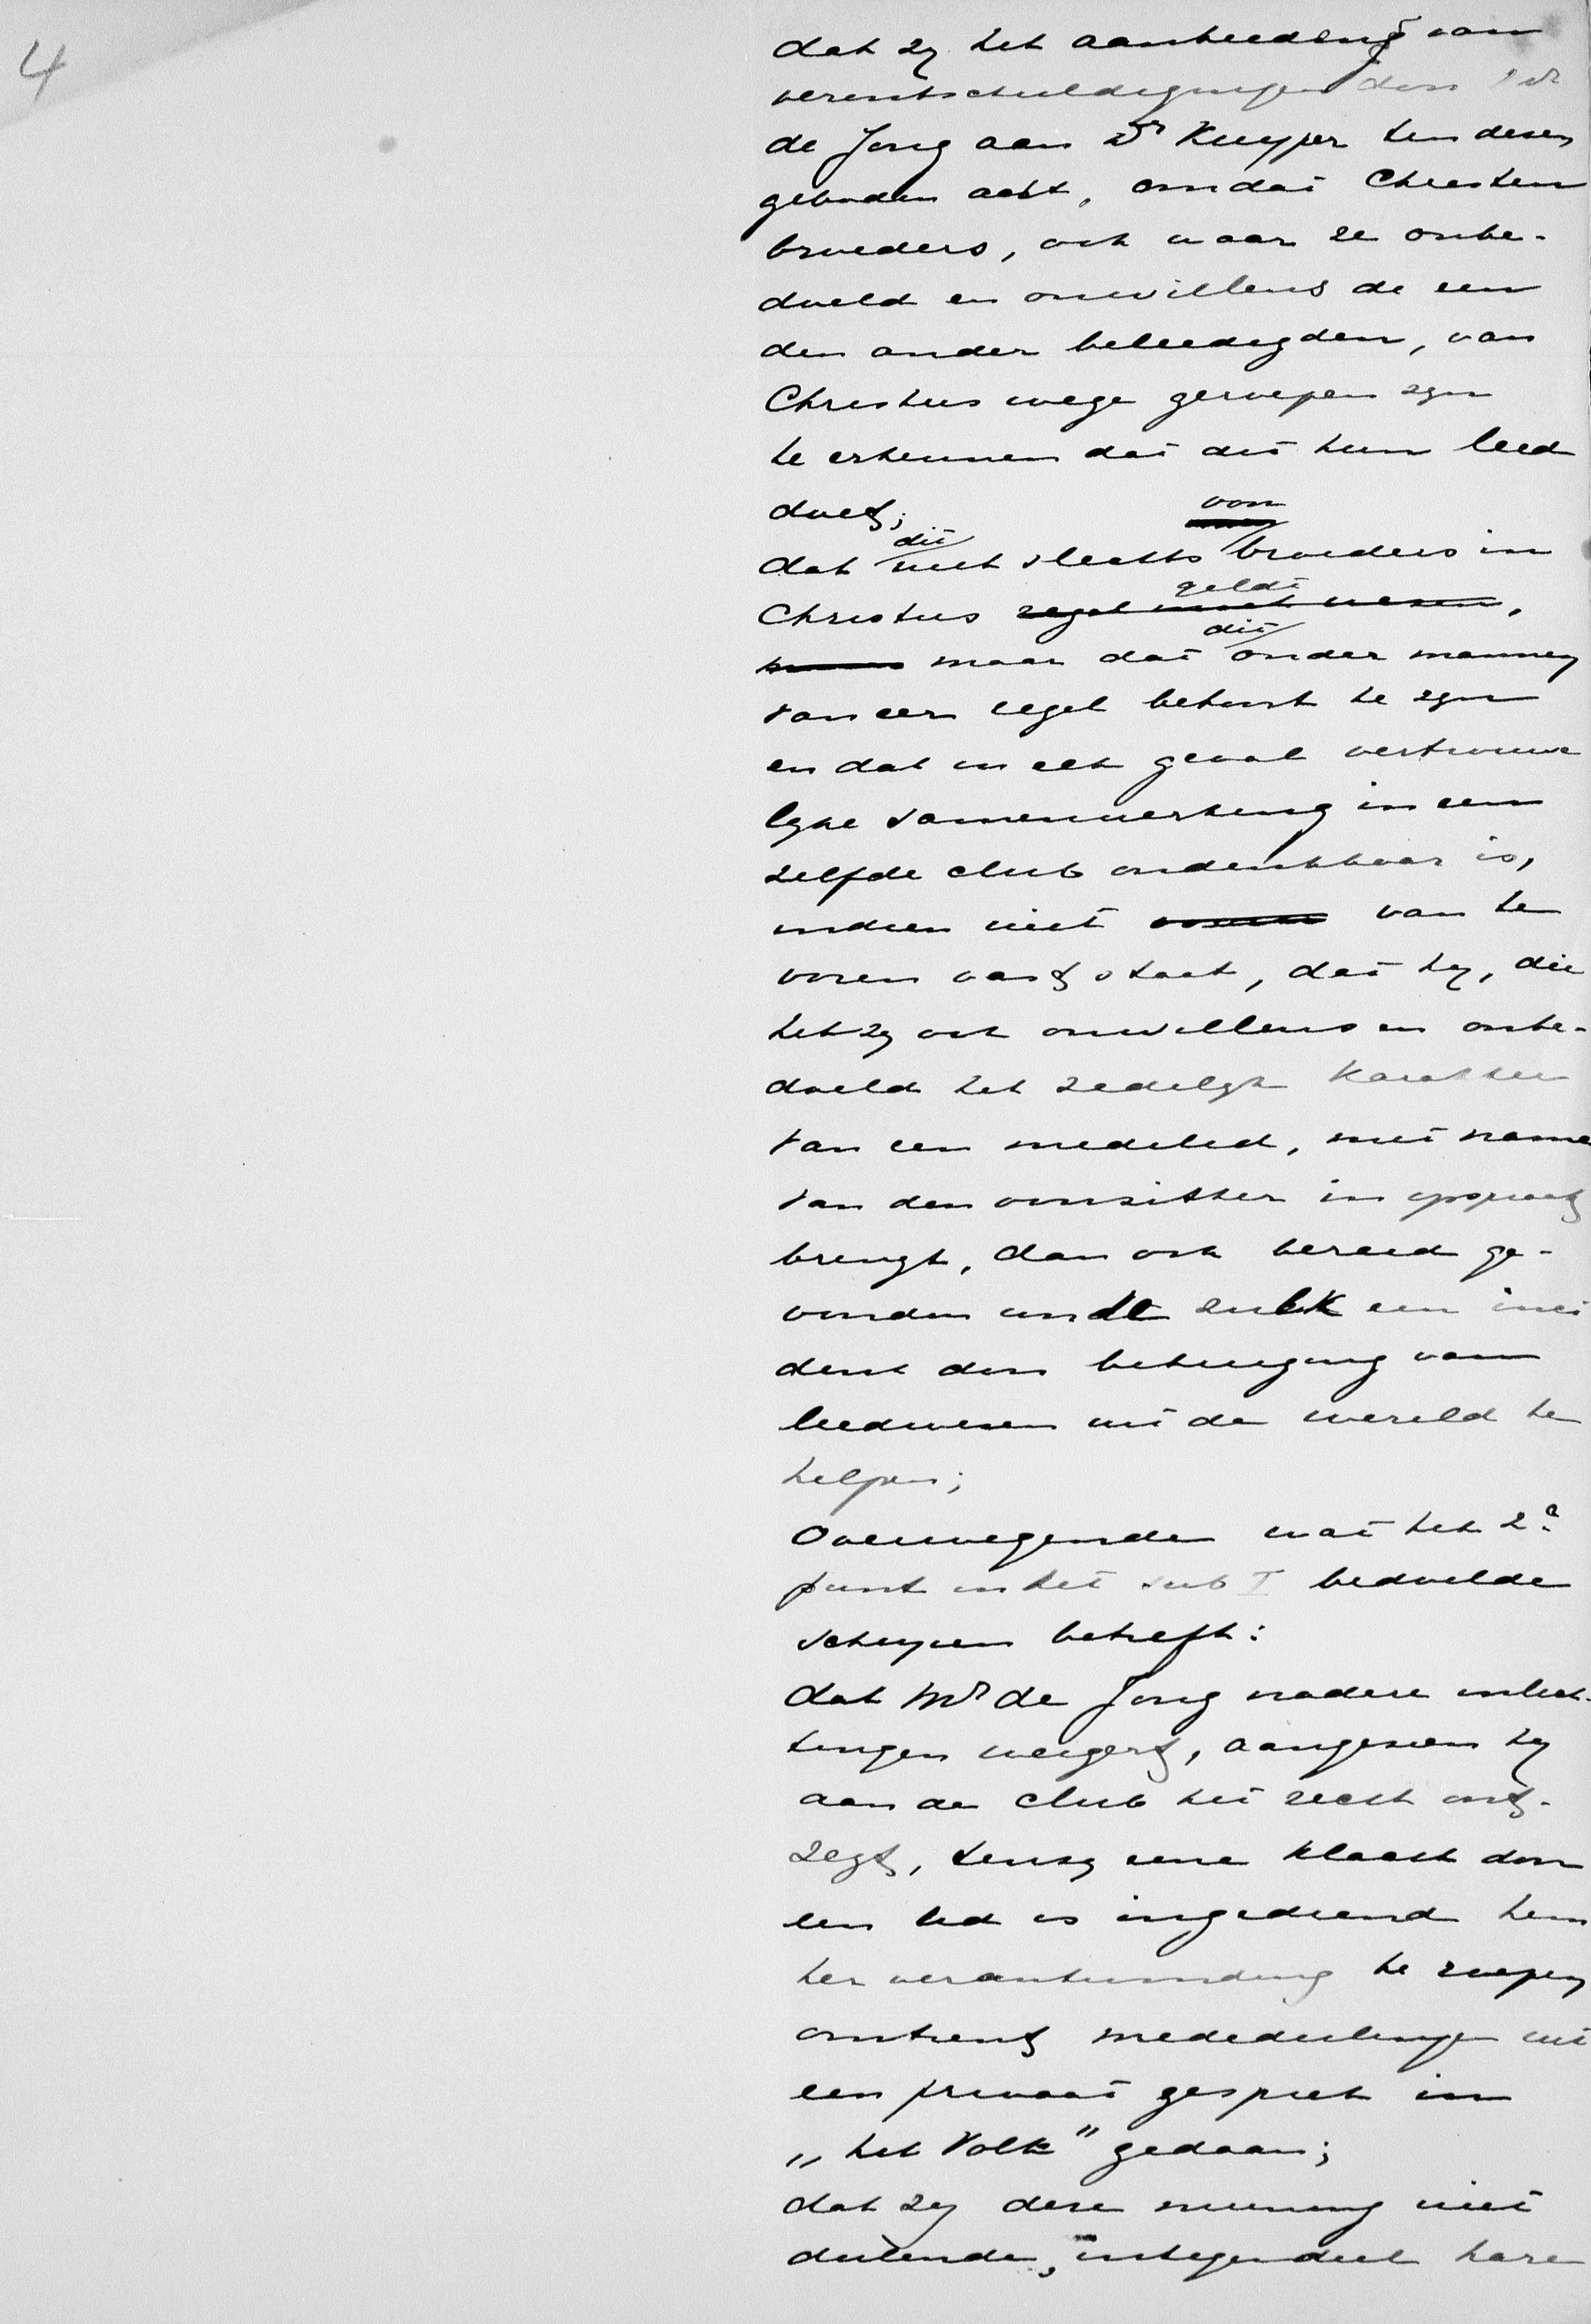 4
dat zij het aanbieding van
verontschuldigingen door Mr
de Jong aan Dr Kuyper ten dezen
geboden acht, omdat Christen
broeders, ook waar ze onbe-
doeld en onwillens de een
den ander beleedigden, van
Christus wege geroepen zijn
te erkennen dat dit hun leed
doet;
dat dit niet slechts voor broeders in
Christus geldt,
maar dat dit onder mannen
van eer regel behoort te zijn
en dat in elk geval vertrouwe
lijke samenwerking in een
zelfde club ondenkbaar is,
indien niet van te
voren vast staat, dat hij, die
het zij ook onwillens en onbe-
doeld het zedelijk karakter
van een medelid, met name
van den voorzitter in opspraak
brengt, dan ook bereid ge-
vonden wordt zulk een inci
dent door betuiging van
leedwezen uit de wereld te
helpen;
Overwegende wat het 2e
punt in het sub I bedoelde
schrijven betreft:
dat Mr de Jong nadere inlich-
tingen weigert, aangezien hij
aan de club het recht ont-
zegt, tenzij eene klacht door
een lid is ingediend hem
ter verantwoording te roepen
omtrent mededeelingen uit
een privaat gesprek in
„het Volk" gedaan;
dat zij deze meening niet
deelende, integendeel hare